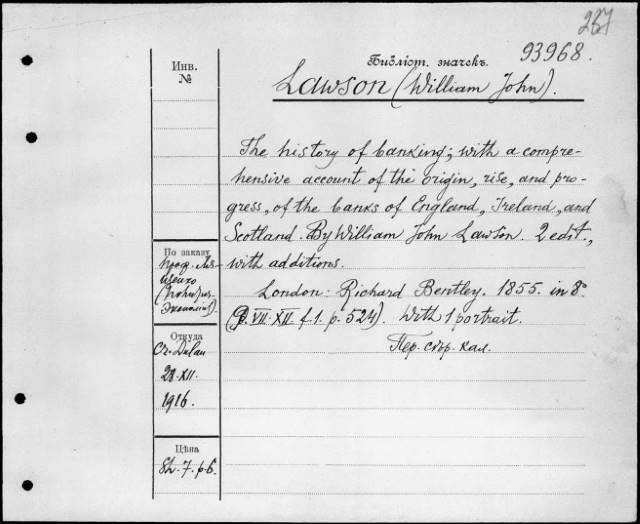 237
93968.
Инв.
№
Библіот. значекъ.
Lawson (William John).
The history of banking; with a compre-
hensive account of the origin, rise, and pro-
gress, of the banks of England, Ireland, and
Scotland. By William John Lawson. 2 edit.,
with additions.
London: Richard Bentley. 1855. in 8°
VII. XII. f. 1. p. 524). With 1 portrait.
Пер. сбор. кал.
По заказу
проф.
Откуда
28.XII.
1916.
Цѣна
Sh. 7. p. 6.